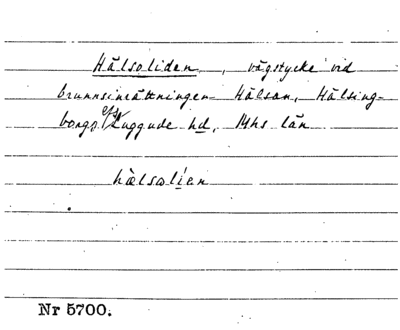 Hälsoliden, vägstycke vid
brunnsinrättningen Hälsan, Hälsing-
borgs Luggude hd, Mhs län
hälsolien
Nr 5700.